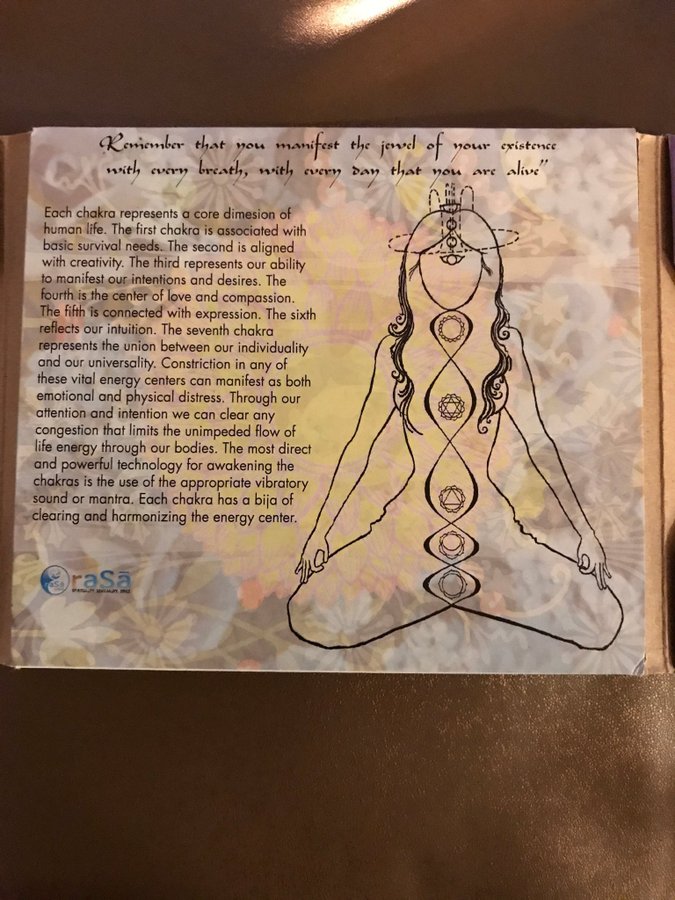 Remember that you manifest the jewel of your existence
with every breath, with every day that you are alive”
Each chakra represents a core dimesion of
human life. The first chakra is associated with
basic survival needs. The second is aligned
with creativity. The third represents our ability
to manifest our intentions and desires. The
fourth is the center of love and compassion.
The fifth is connected with expression. The sixth
reflects our intuition. The seventh chakra
represents the union between our individuality
and our universality. Constriction in any of
these vital energy centers can manifest as both
emotional and physical distress. Through our
attention and intention we can clear any
congestion that limits the unimpeded flow of
life energy through our bodies. The most direct
and powerful technology for awakening the
chakras is the use of the appropriate vibratory
sound or mantra. Each chakra has a bija of
clearing and harmonizing the energy center.
raSā